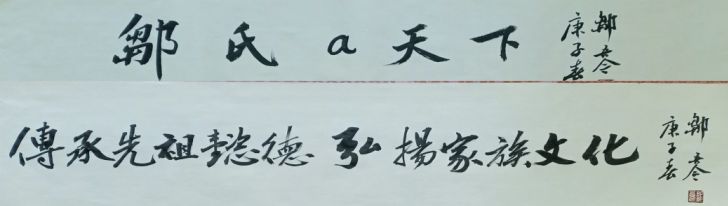 鄒氏a天下
庚子春
傳承先祖懿德 弘揚家族文化
庚子春